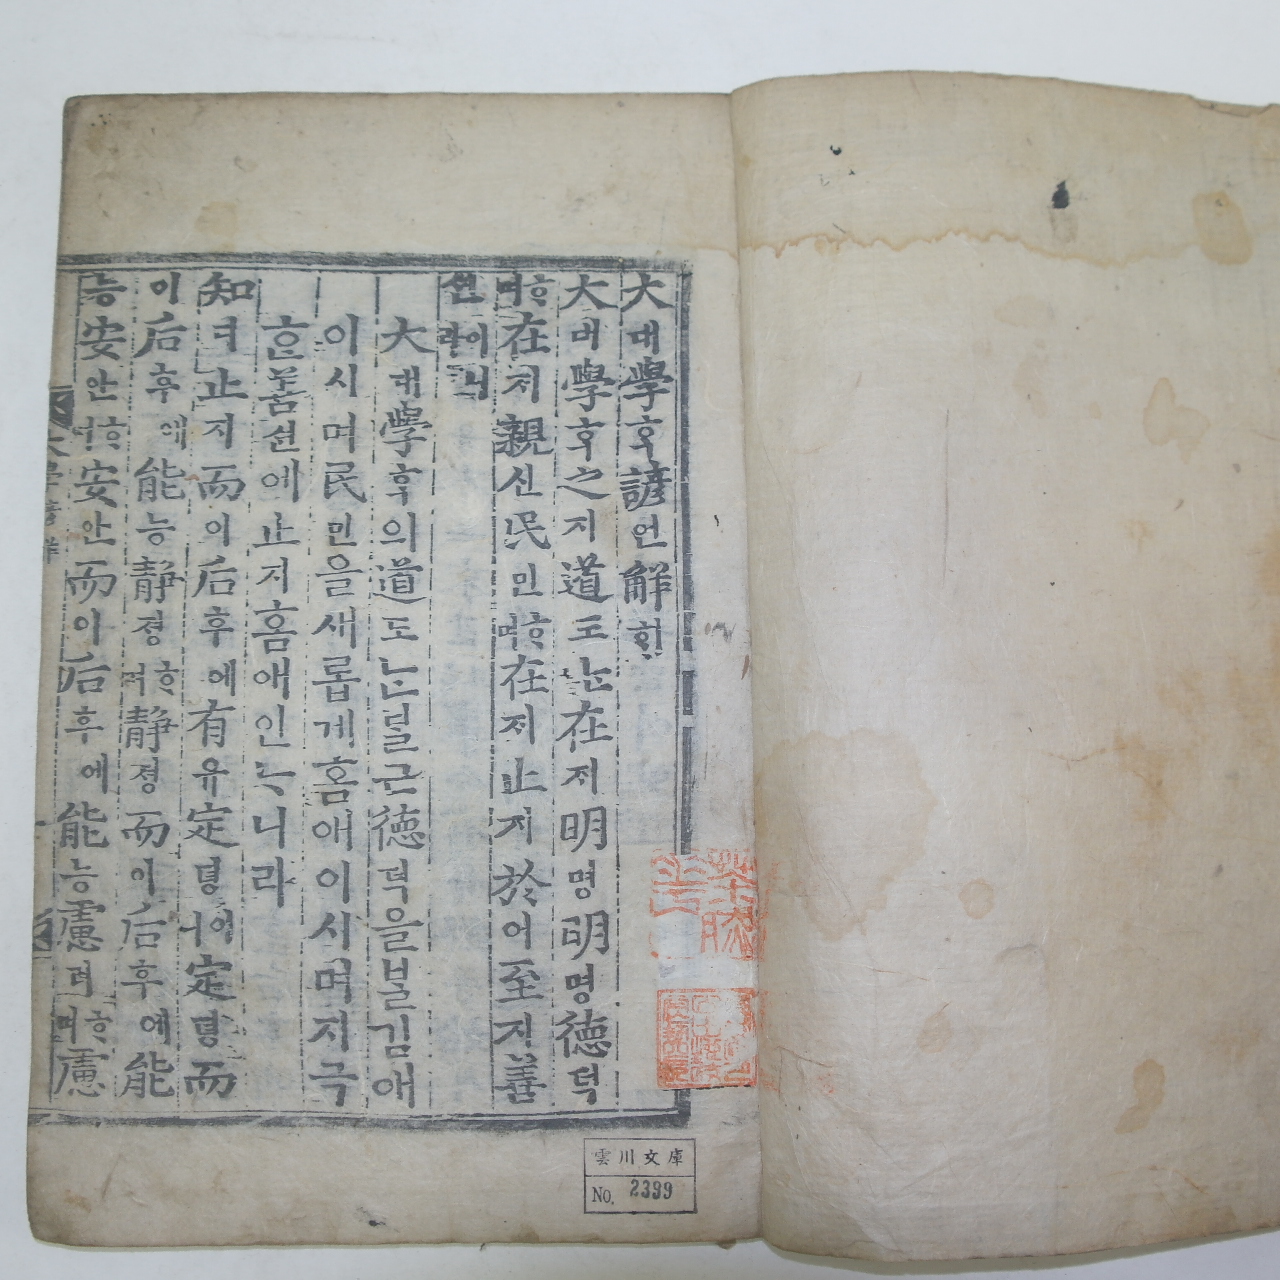 大대學ᄒᆞᆨ諺언解ᄒᆡ
大대學ᄒᆞᆨ之지道도ᄂᆞᆫ在ᄌᆡ明명明명德덕
ᄒᆞ며在ᄌᆡ親신民민ᄒᆞ며在ᄌᆡ止지於어至지善
션이니라
大대學ᄒᆞᆨ의道도ᄂᆞᆫᄇᆞᆯ근德덕을ᄇᆞᆯ김애
이시며民민을새롭게홈애이시며지극
ᄒᆞᆫ善션에止지홈애인ᄂᆞ니라
知디止지而이后후에有유定뎡이니定뎡而
이后후에能능靜졍ᄒᆞ며靜졍而이后후에能
능安안ᄒᆞ며安안而이后후에能능慮려ᄒᆞ며慮
大學諺解
一
雲川文庫
No. 2399